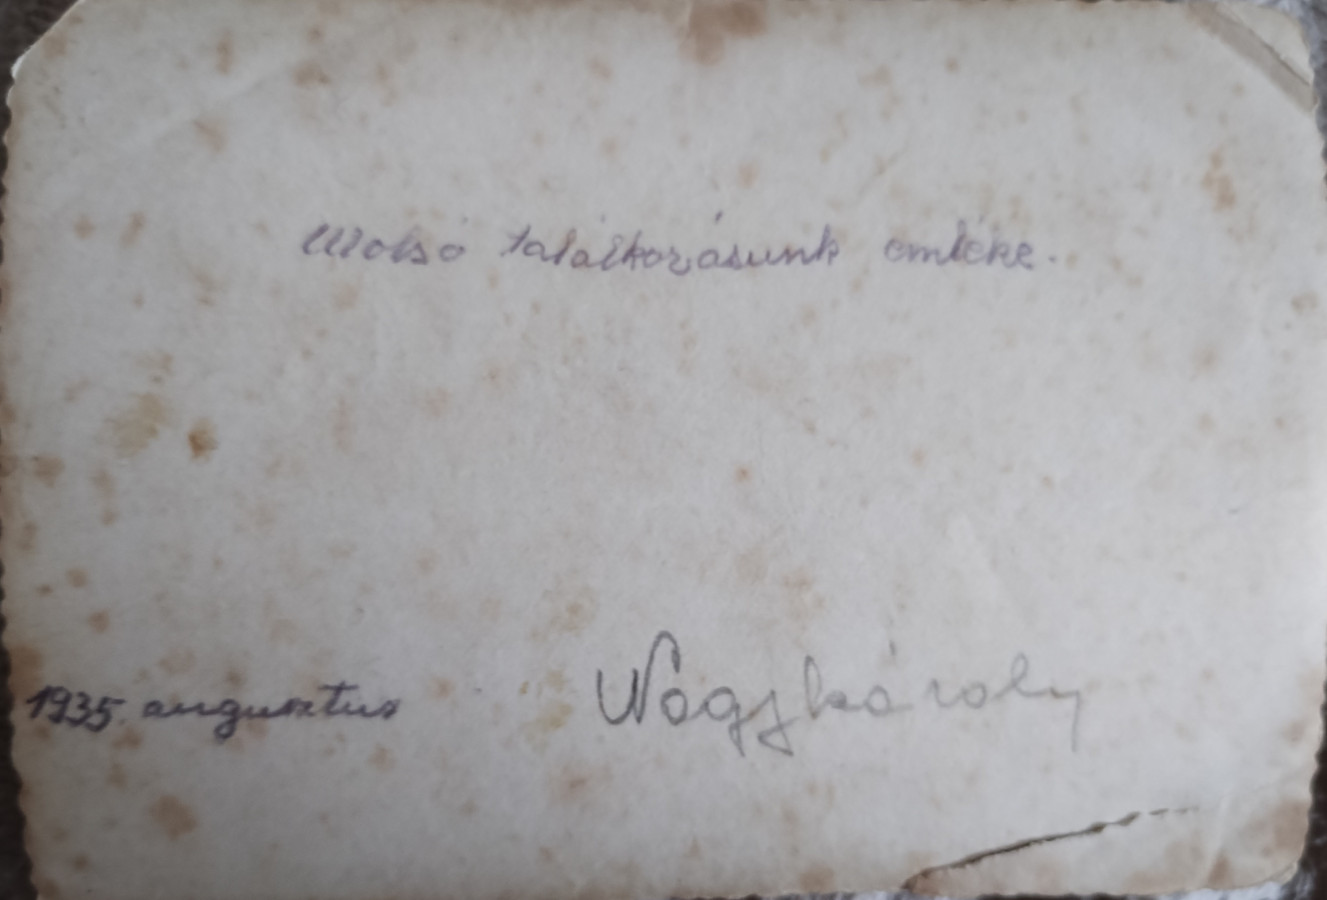 Utolsó találkozásunk emléke.
1935. augusztus
Nagy károly